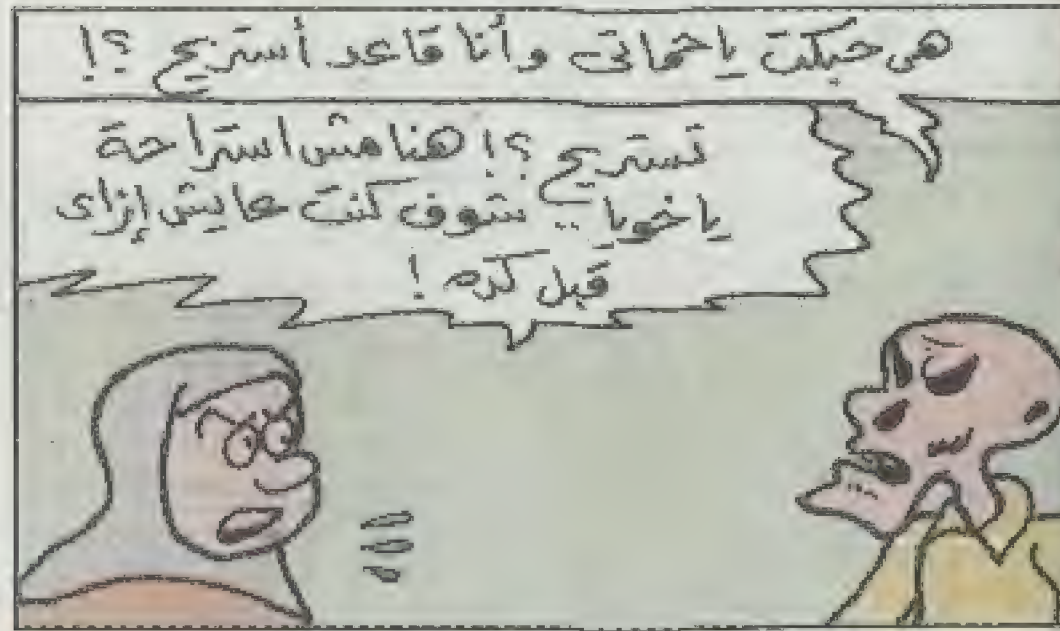 هي حبكت يا حماتي وأنا قاعد أستريح ؟!
تستريح ؟! هنا مش استراحة
ياخويا .. شوف كنت عايش إزاى
قبل كده !